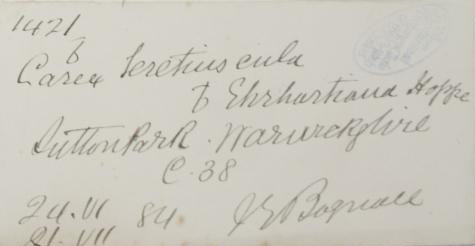 1421
b
Carex teretiuscula
b Ehrhartiana Hoppe
Sutton Park. Warwickshire
C. 38
24.VI 84 J E Bagnall
21.VII